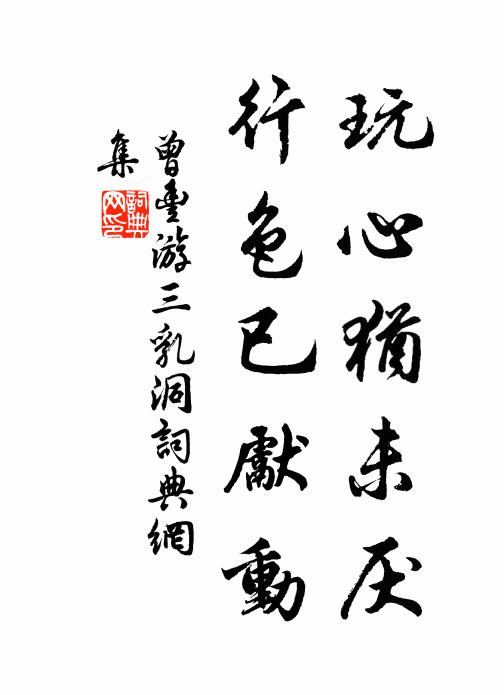 玩心猶未厌
行色已獻動
曾豊游三乳洞詞典網
集
詞典
网印